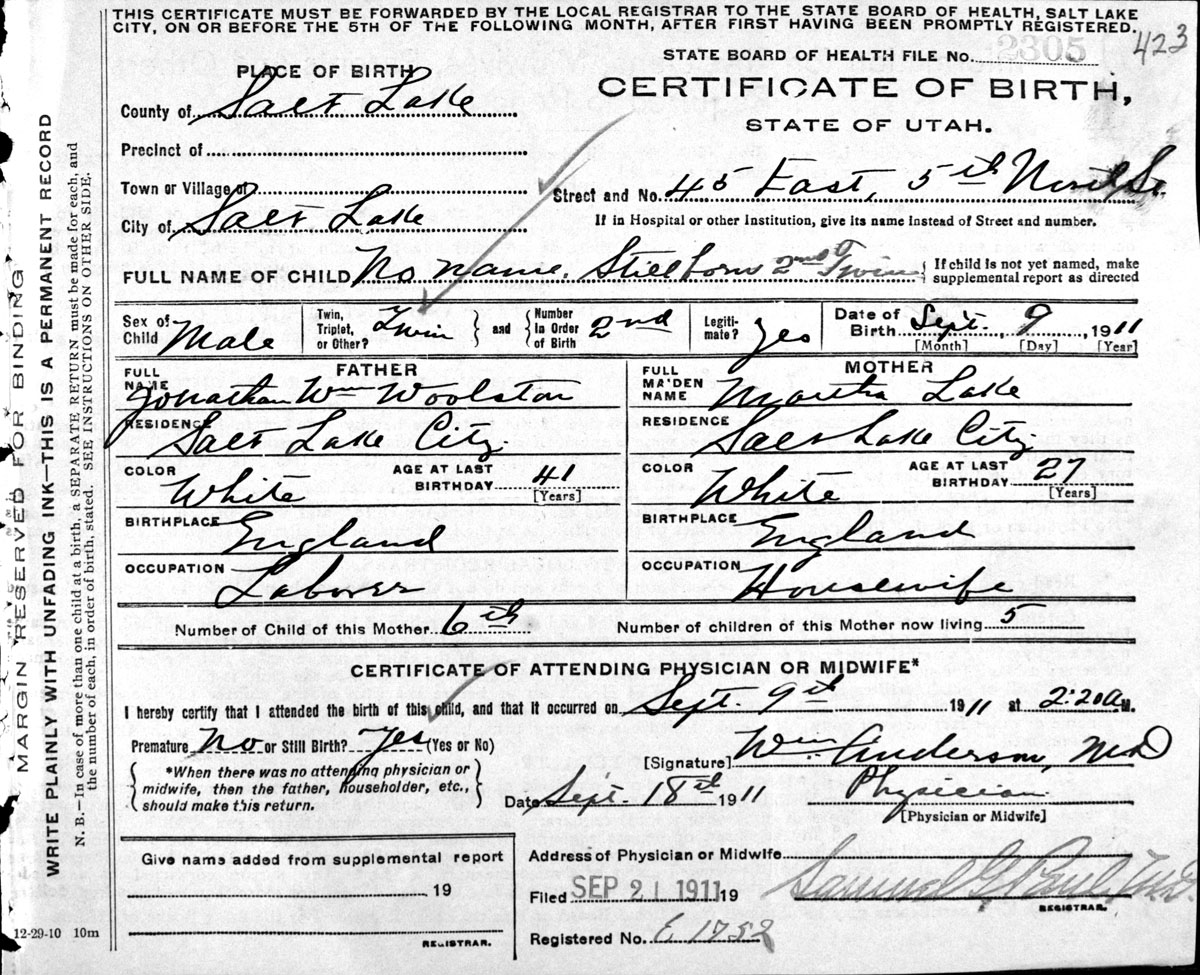 THIS CERTIFICATE MUST BE FORWARDED BY THE LOCAL REGISTRAR TO THE STATE BOARD OF HEALTH, SALT LAKE
CITY, ON OR BEFORE THE 5TH OF THE FOLLOWING MONTH, AFTER FIRST HAVING BEEN PROMPTLY REGISTERED.
423
STATE BOARD OF HEALTH FILE No. 2305
PLACE OF BIRTH
CERTIFICATE OF BIRTH,
STATE OF UTAH.
County of Salt Lake
Precinct of
Town or Village of
Street and No. 45 East, 5th North St.
City of Salt Lake
If in Hospital or other Institution, give its name instead of Street and number.
FULL NAME OF CHILD No name. Stillborn 2nd Twin
If child is not yet named, make
supplemental report as directed
Sex of Child Male
Twin, Triplet, or Other? Twin
and Number in Order of Birth 2nd
Legiti-mate? Yes
Date of Birth Sept. 9 1911
[Month] [Day] [Year]
FATHER
FULL NAME Jonathan Wm Woolston
RESIDENCE Salt Lake City
COLOR White
AGE AT LAST BIRTHDAY 41
[Years]
BIRTHPLACE England
OCCUPATION Laborer
MOTHER
FULL MAIDEN NAME Martha Lake
RESIDENCE Salt Lake City
COLOR White
AGE AT LAST BIRTHDAY 27
[Years]
BIRTHPLACE England
OCCUPATION Housewife
Number of Child of this Mother 6th
Number of children of this Mother now living 5
CERTIFICATE OF ATTENDING PHYSICIAN OR MIDWIFE*
I hereby certify that I attended the birth of this child, and that it occurred on Sept. 9th 1911 at 2:20 a M.
Premature No or Still Birth? Yes (Yes or No)
[Signature] Wm. Anderson, MD
*When there was no attending physician or
midwife, then the father, householder, etc.,
should make this return.
Date Sept. 18th 1911
Physician
[Physician or Midwife]
Give name added from supplemental report
19
REGISTRAR.
12-29-10 10m
Address of Physician or Midwife
Filed SEP 21 1911 19
Samuel G. Paul, M.D.
REGISTRAR.
Registered No. 6 1752
MARGIN RESERVED FOR BINDING
WRITE PLAINLY WITH UNFADING INK—THIS IS A PERMANENT RECORD
N. B.—In case of more than one child at a birth, a SEPARATE RETURN must be made for each, and
the number of each, in order of birth, stated. SEE INSTRUCTIONS ON OTHER SIDE.